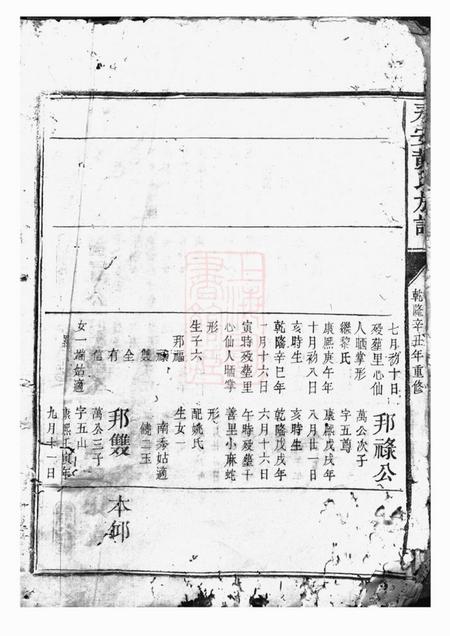 安黃氏族譜
乾隆辛丑年重修
七月初十日
歿墓里心仙
人晒掌形
繼黎氏
康熙庚午年
十月初八日
亥時生
乾隆辛巳年
一月十六日
寅時歿墓里
心仙人晒掌
形
生子六
邦福
祿
雙
全
有
信
女一 姑適
邦祿公
萬公次子
字五尊
康熙戊戌年
八月廿一日
亥時生
乾隆戊戌年
六月十六日
午時歿墓十
善里小麻蛇
形
配姚氏
生女一
南秀姑適
饒二玉
邦雙
萬公三子
字五山
康熙壬寅年
九月十一日
本邨